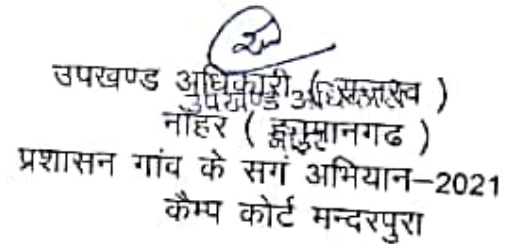 उपखण्ड अधिकारी (राजस्व )
उपखण्ड अधिकारी
नोहर ( हनुमानगढ )
प्रशासन गांव के सगं अभियान–2021
कैम्प कोर्ट मन्दरपुरा